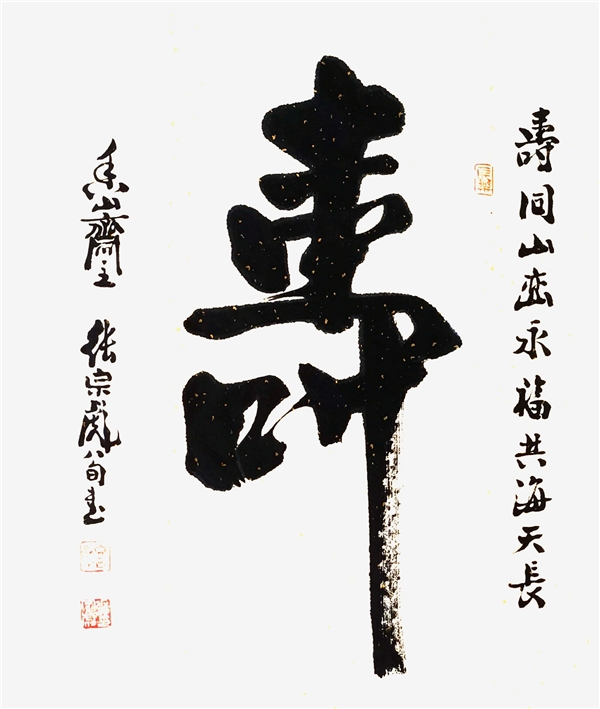 壽同山峦永福共海天長
壽
香山齋主 張宗彪八旬書